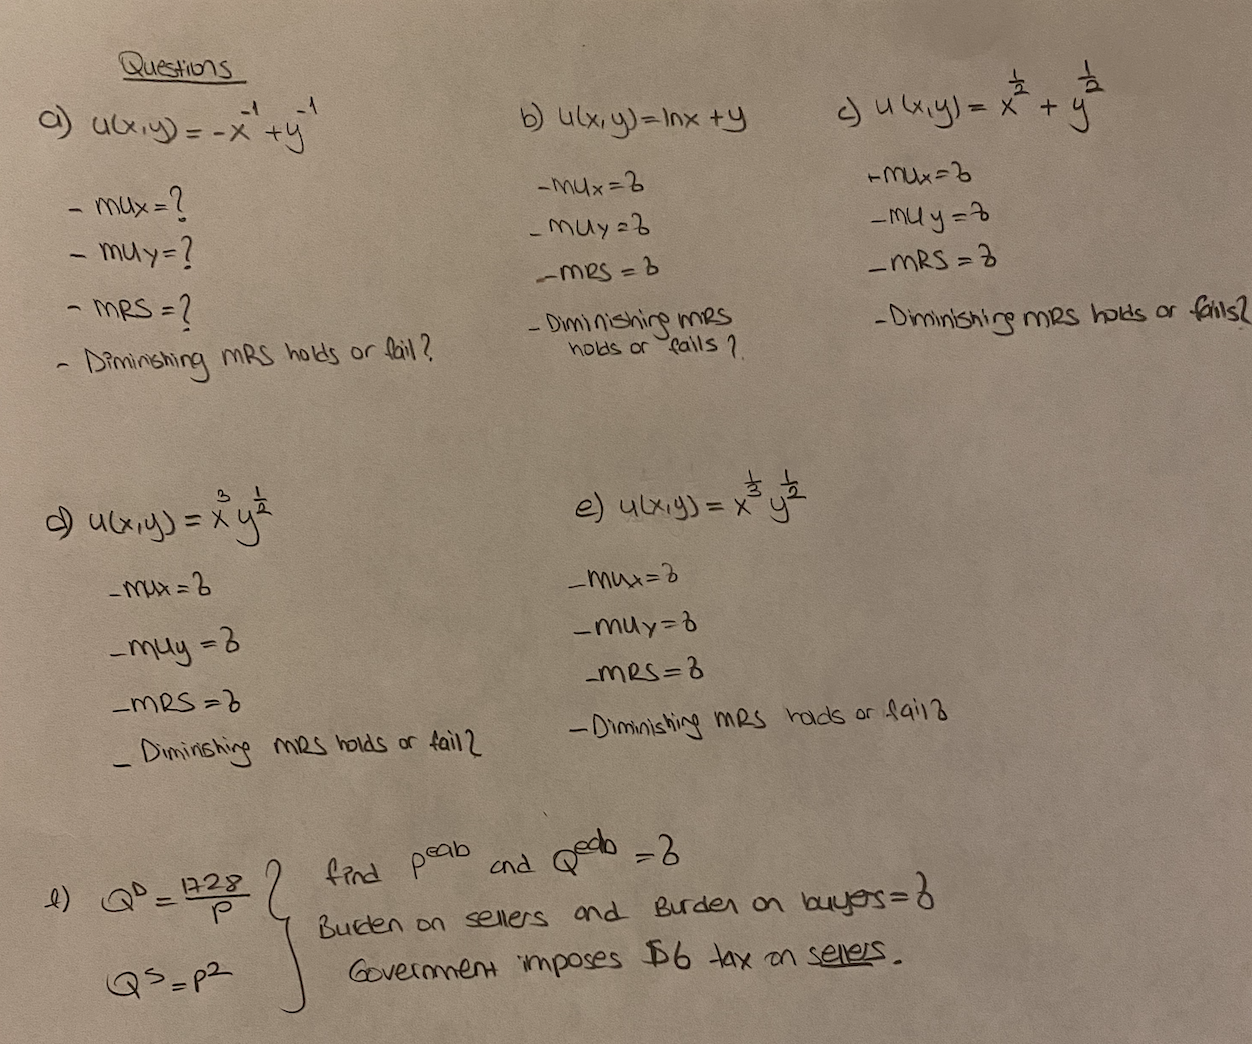 Questions
a) u(x,y) = -x⁻¹ + y⁻¹
- mux = ?
- muy = ?
- MRS = ?
- Diminishing MRS holds or fail?
b) u(x,y) = lnx + y
- mux = ?
- muy = ?
- MRS = ?
- Diminishing MRS
holds or fails?
c) u(x,y) = x^½ + y^½
- mux = ?
- muy = ?
- MRS = ?
- Diminishing MRS holds or fails?
d) u(x,y) = x³ y^½
- mux = ?
- muy = ?
- MRS = ?
- Diminishing MRS holds or fail?
e) u(x,y) = x^⅓ y^½
- mux = ?
- muy = ?
- MRS = ?
- Diminishing MRS holds or fail?
Qᴰ = 1728/P
Qˢ = P²
find and = ?
Burden on sellers and Burden on buyers = ?
Government imposes $6 tax on sellers.